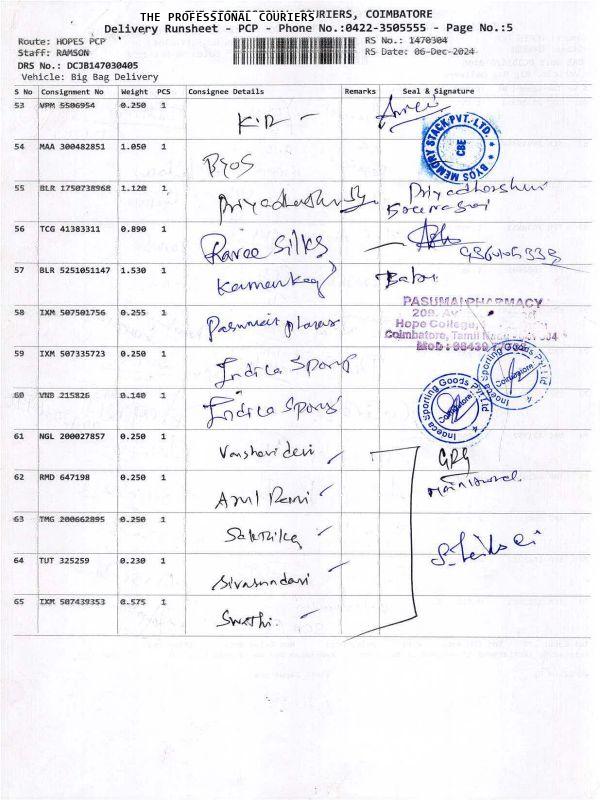 THE PROFESSIONAL COURIERS
COURIERS, COIMBATORE
Delivery Runsheet - PCP - Phone No.:0422-3505555 - Page No.:5
Route: HOPES PCP
RS No.: 1470304
Staff: RAMSON
RS Date: 06-Dec-2024
DRS No.: DCJB147030405
Vehicle: Big Bag Delivery
S No Consignment No Weight PCS Consignee Details Remarks Seal & Signature
53 VPM 5506954 0.250 1 K.R
54 MAA 300482851 1.050 1 Byos
BYOS MEMORY STACK PVT. LTD. CBE
55 BLR 1750738968 1.120 1 Priyadharshini Priyadharshini
56 TCG 41383311 0.890 1 Ravee Silks
57 BLR 5251051147 1.530 1 Babu
58 IXM 507501756 0.255 1
PASUMAI PHARMACY
209, Av
Hope College,
Coimbatore, Tamil
Mob : 98439
59 IXM 507335723 0.250 1 Indica Sports
60 VNB 215826 0.140 1 Indica Sports
Sporting Goods Pvt Ltd Coimbatore
Sporting Goods Pvt Ltd Coimbatore
61 NGL 200027857 0.250 1 Vaishnavi devi GRG
62 RMD 647198 0.250 1 Arul Rani
63 TMG 200662895 0.250 1
64 TUT 325259 0.230 1 Sivasundari
65 IXM 507439353 0.575 1 Swathi